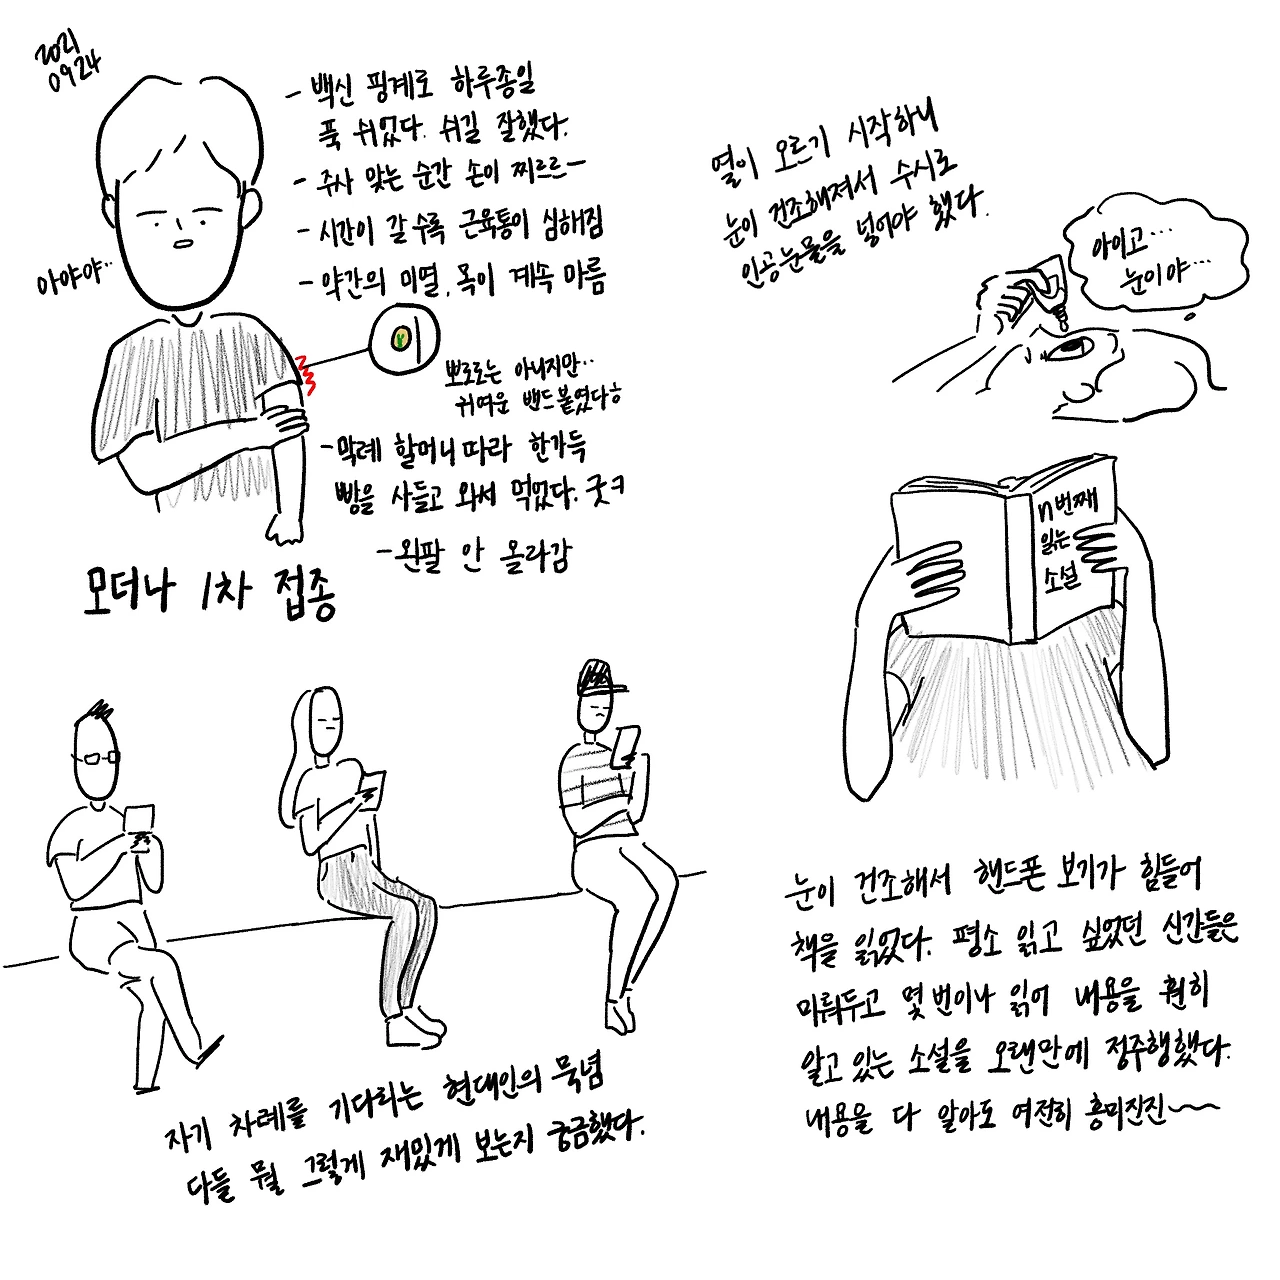 2021
0924
- 백신 핑계로 하루종일
푹 쉬었다. 쉬길 잘했다.
- 주사 맞는 순간 손이 찌르르-
- 시간이 갈수록 근육통이 심해짐
- 약간의 미열, 목이 계속 마름
아야야..
뽀로로는 아니지만..
귀여운 밴드 붙였다ㅎ
- 막례 할머니 따라 한가득
빵을 사들고 와서 먹었다. 굿ㅋ
- 왼팔 안 올라감
모더나 1차 접종
열이 오르기 시작하니
눈이 건조해져서 수시로
인공눈물을 넣어야 했다.
아이고...
눈이야...
n번째
읽는
소설
눈이 건조해서 핸드폰 보기가 힘들어
책을 읽었다. 평소 읽고 싶었던 신간들은
미뤄두고 몇 번이나 읽어 내용을 훤히
알고 있는 소설을 오랜만에 정주행했다.
내용을 다 알아도 여전히 흥미진진~~
자기 차례를 기다리는 현대인의 묵념
다들 뭘 그렇게 재밌게 보는지 궁금했다.